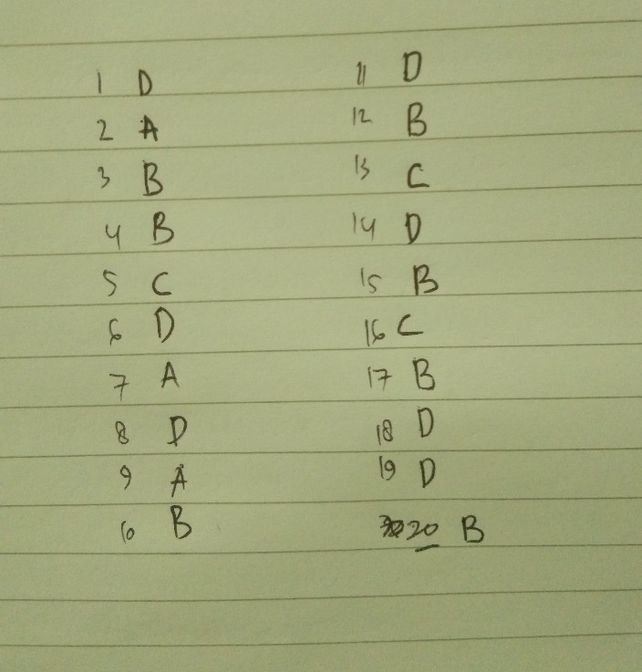 1 D
2 A
3 B
4 B
5 C
6 D
7 A
8 D
9 A
10 B
11 D
12 B
13 C
14 D
15 B
16 C
17 B
18 D
19 D
20 B